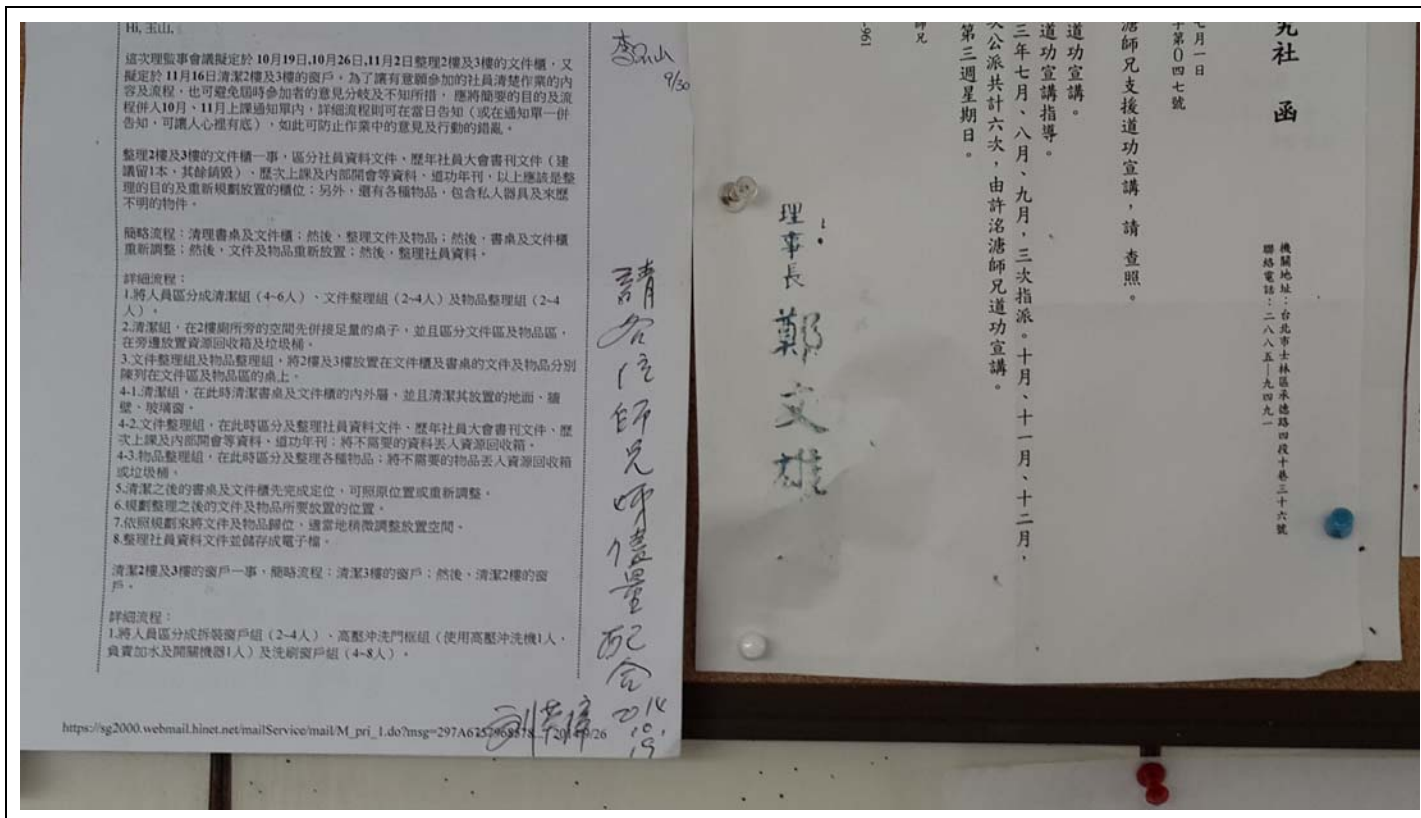 Hi, 玉山,
這次理監事會議擬定於 10月19日,10月26日,11月2日整理2樓及3樓的文件櫃，又
擬定於 11月16日清潔2樓及3樓的窗戶。為了讓有意願參加的社員清楚作業的內
容及流程，也可避免屆時參加者的意見分歧及不知所措， 應將簡要的目的及流
程併入10月、11月上課通知單內，詳細流程則可在當日告知（或在通知單一併
告知，可讓人心裡有底），如此可防止作業中的意見及行動的錯亂。
整理2樓及3樓的文件櫃一事，區分社員資料文件、歷年社員大會書刊文件（建
議留1本，其餘銷毀）、歷次上課及內部開會等資料、道功年刊，以上應該是整
理的目的及重新規劃放置的櫃位；另外，還有各種物品，包含私人器具及來歷
不明的物件。
簡略流程：清理書桌及文件櫃；然後，整理文件及物品；然後，書桌及文件櫃
重新調整；然後，文件及物品重新放置；然後，整理社員資料。
詳細流程：
1.將人員區分成清潔組（4~6人）、文件整理組（2~4人）及物品整理組（2~4
人）。
2.清潔組，在2樓廁所旁的空間先併接足量的桌子，並且區分文件區及物品區，
在旁邊放置資源回收箱及垃圾桶。
3.文件整理組及物品整理組，將2樓及3樓放置在文件櫃及書桌的文件及物品分別
陳列在文件區及物品區的桌上。
4-1.清潔組，在此時清潔書桌及文件櫃的內外層，並且清潔其放置的地面、牆
壁、玻璃窗。
4-2.文件整理組，在此時區分及整理社員資料文件、歷年社員大會書刊文件、歷
次上課及內部開會等資料、道功年刊；將不需要的資料丟入資源回收箱。
4-3.物品整理組，在此時區分及整理各種物品；將不需要的物品丟入資源回收箱
或垃圾桶。
5.清潔之後的書桌及文件櫃先完成定位，可照原位置或重新調整。
6.規劃整理之後的文件及物品所要放置的位置。
7.依照規劃來將文件及物品歸位，適當地稍微調整放置空間。
8.整理社員資料文件並儲存成電子檔。
清潔2樓及3樓的窗戶一事，簡略流程：清潔3樓的窗戶；然後，清潔2樓的窗
戶。
詳細流程：
1.將人員區分成拆裝窗戶組（2~4人）、高壓沖洗門框組（使用高壓沖洗機1人，
負責加水及開關機器1人）及洗刷窗戶組（4~8人）。
https://sg2000.webmail.hinet.net/mailService/mail/M_pri_1.do?msg=297A6757968
9/26
9/30
請各位師兄姊儘量配合
2014
10.
19
究社 函
七月一日
字第０四七號
機關地址：台北市士林區承德路四段十巷三十六號
聯絡電話：二八八五—九四九一
溏師兄支援道功宣講，請 查照。
道功宣講。
道功宣講指導。
三年七月、八月、九月，三次指派。十月、十一月、十二月，
次公派共計六次，由許洺溏師兄道功宣講。
第三週星期日。
師兄
-961
理事長 鄭文雄